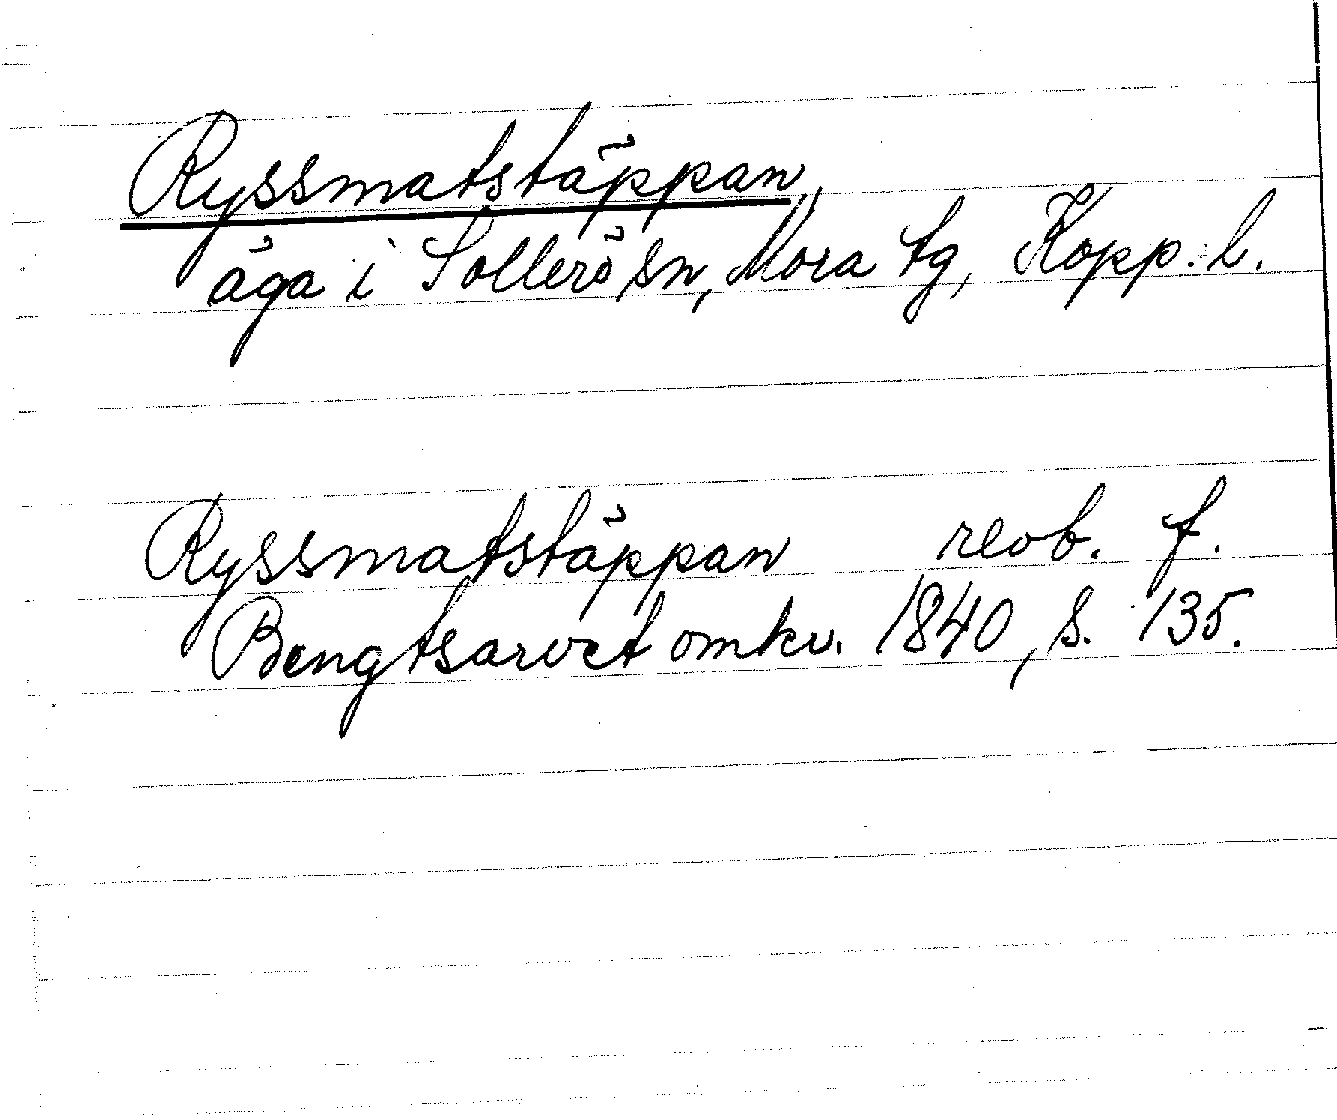 Ryssmatstäppan,
äga i Sollerö sn, Mora tg, Kopp. l.
Ryssmatstäppan revb. f.
Bengtsarvet omkr. 1840, s. 135.